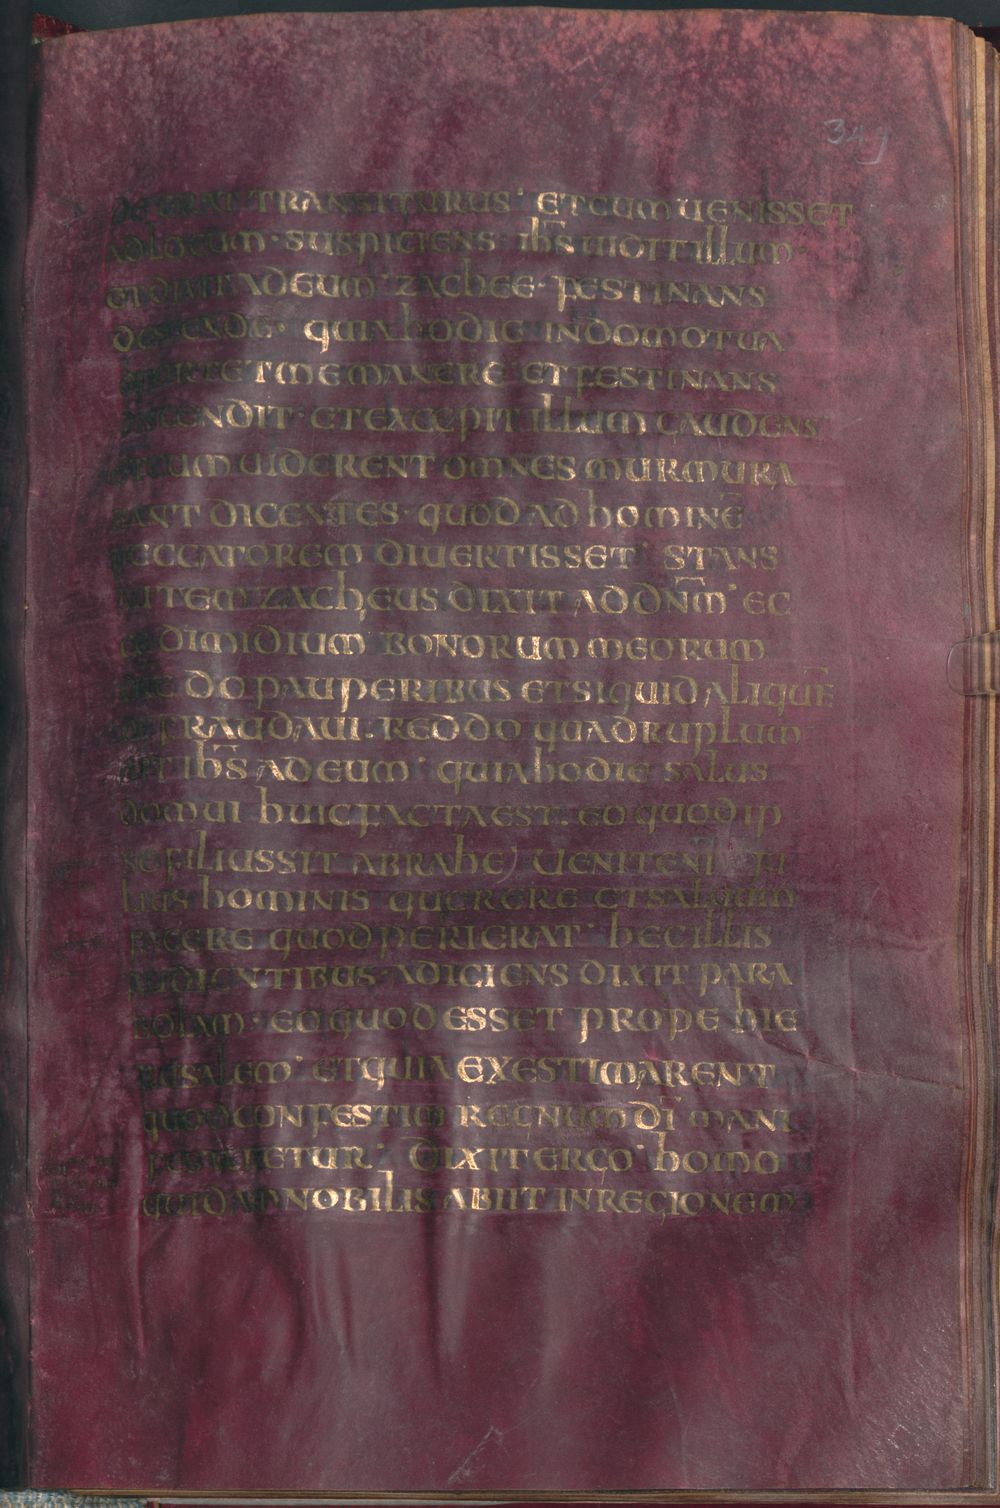 349
DE ERAT TRANSITURUS · ETCUM UENISSET
AD LOCUM · SUSPICIENS · IHS UIDIT ILLUM ·
ET DIXIT AD EUM · ZACHEE · FESTINANS
DESCENDE · QUIA HODIE IN DOMO TUA
OPORTET ME MANERE ET FESTINANS
DISCENDIT · ET EXCEPIT ILLUM GAUDENS
ET CUM UIDERENT OMNES MURMURA
BANT DICENTES · QUOD AD HOMINĒ
PECCATOREM DIUERTISSET · STANS
AUTEM ZACHEUS DIXIT AD DN̄M · EC
CE DIMIDIUM BONORUM MEORUM
DO PAUPERIBUS ET SI QUID ALIQUĒ
DEFRAUDAUI · REDDO QUADRUPLUM
AIT IHS AD EUM · QUIA HODIE SALUS
DOMUI HUIC FACTA EST · EO QUOD IP
SE FILIUS SIT ABRAHE UENIT ENI FI
LIUS HOMINIS QUERERE ET SALUUM
FACERE QUOD PERIERAT · HEC ILLIS
AUDIENTIBUS · ADICIENS DIXIT PARA
BOLAM · EO QUOD ESSET PROPE HIE
RUSALEM · ET QUIA EXESTIMARENT
QUOD CONFESTIM REGNUM DĪ MANI
FESTARETUR · DIXIT ERGO · HOMO
QUIDAM NOBILIS ABIIT IN REGIONEM